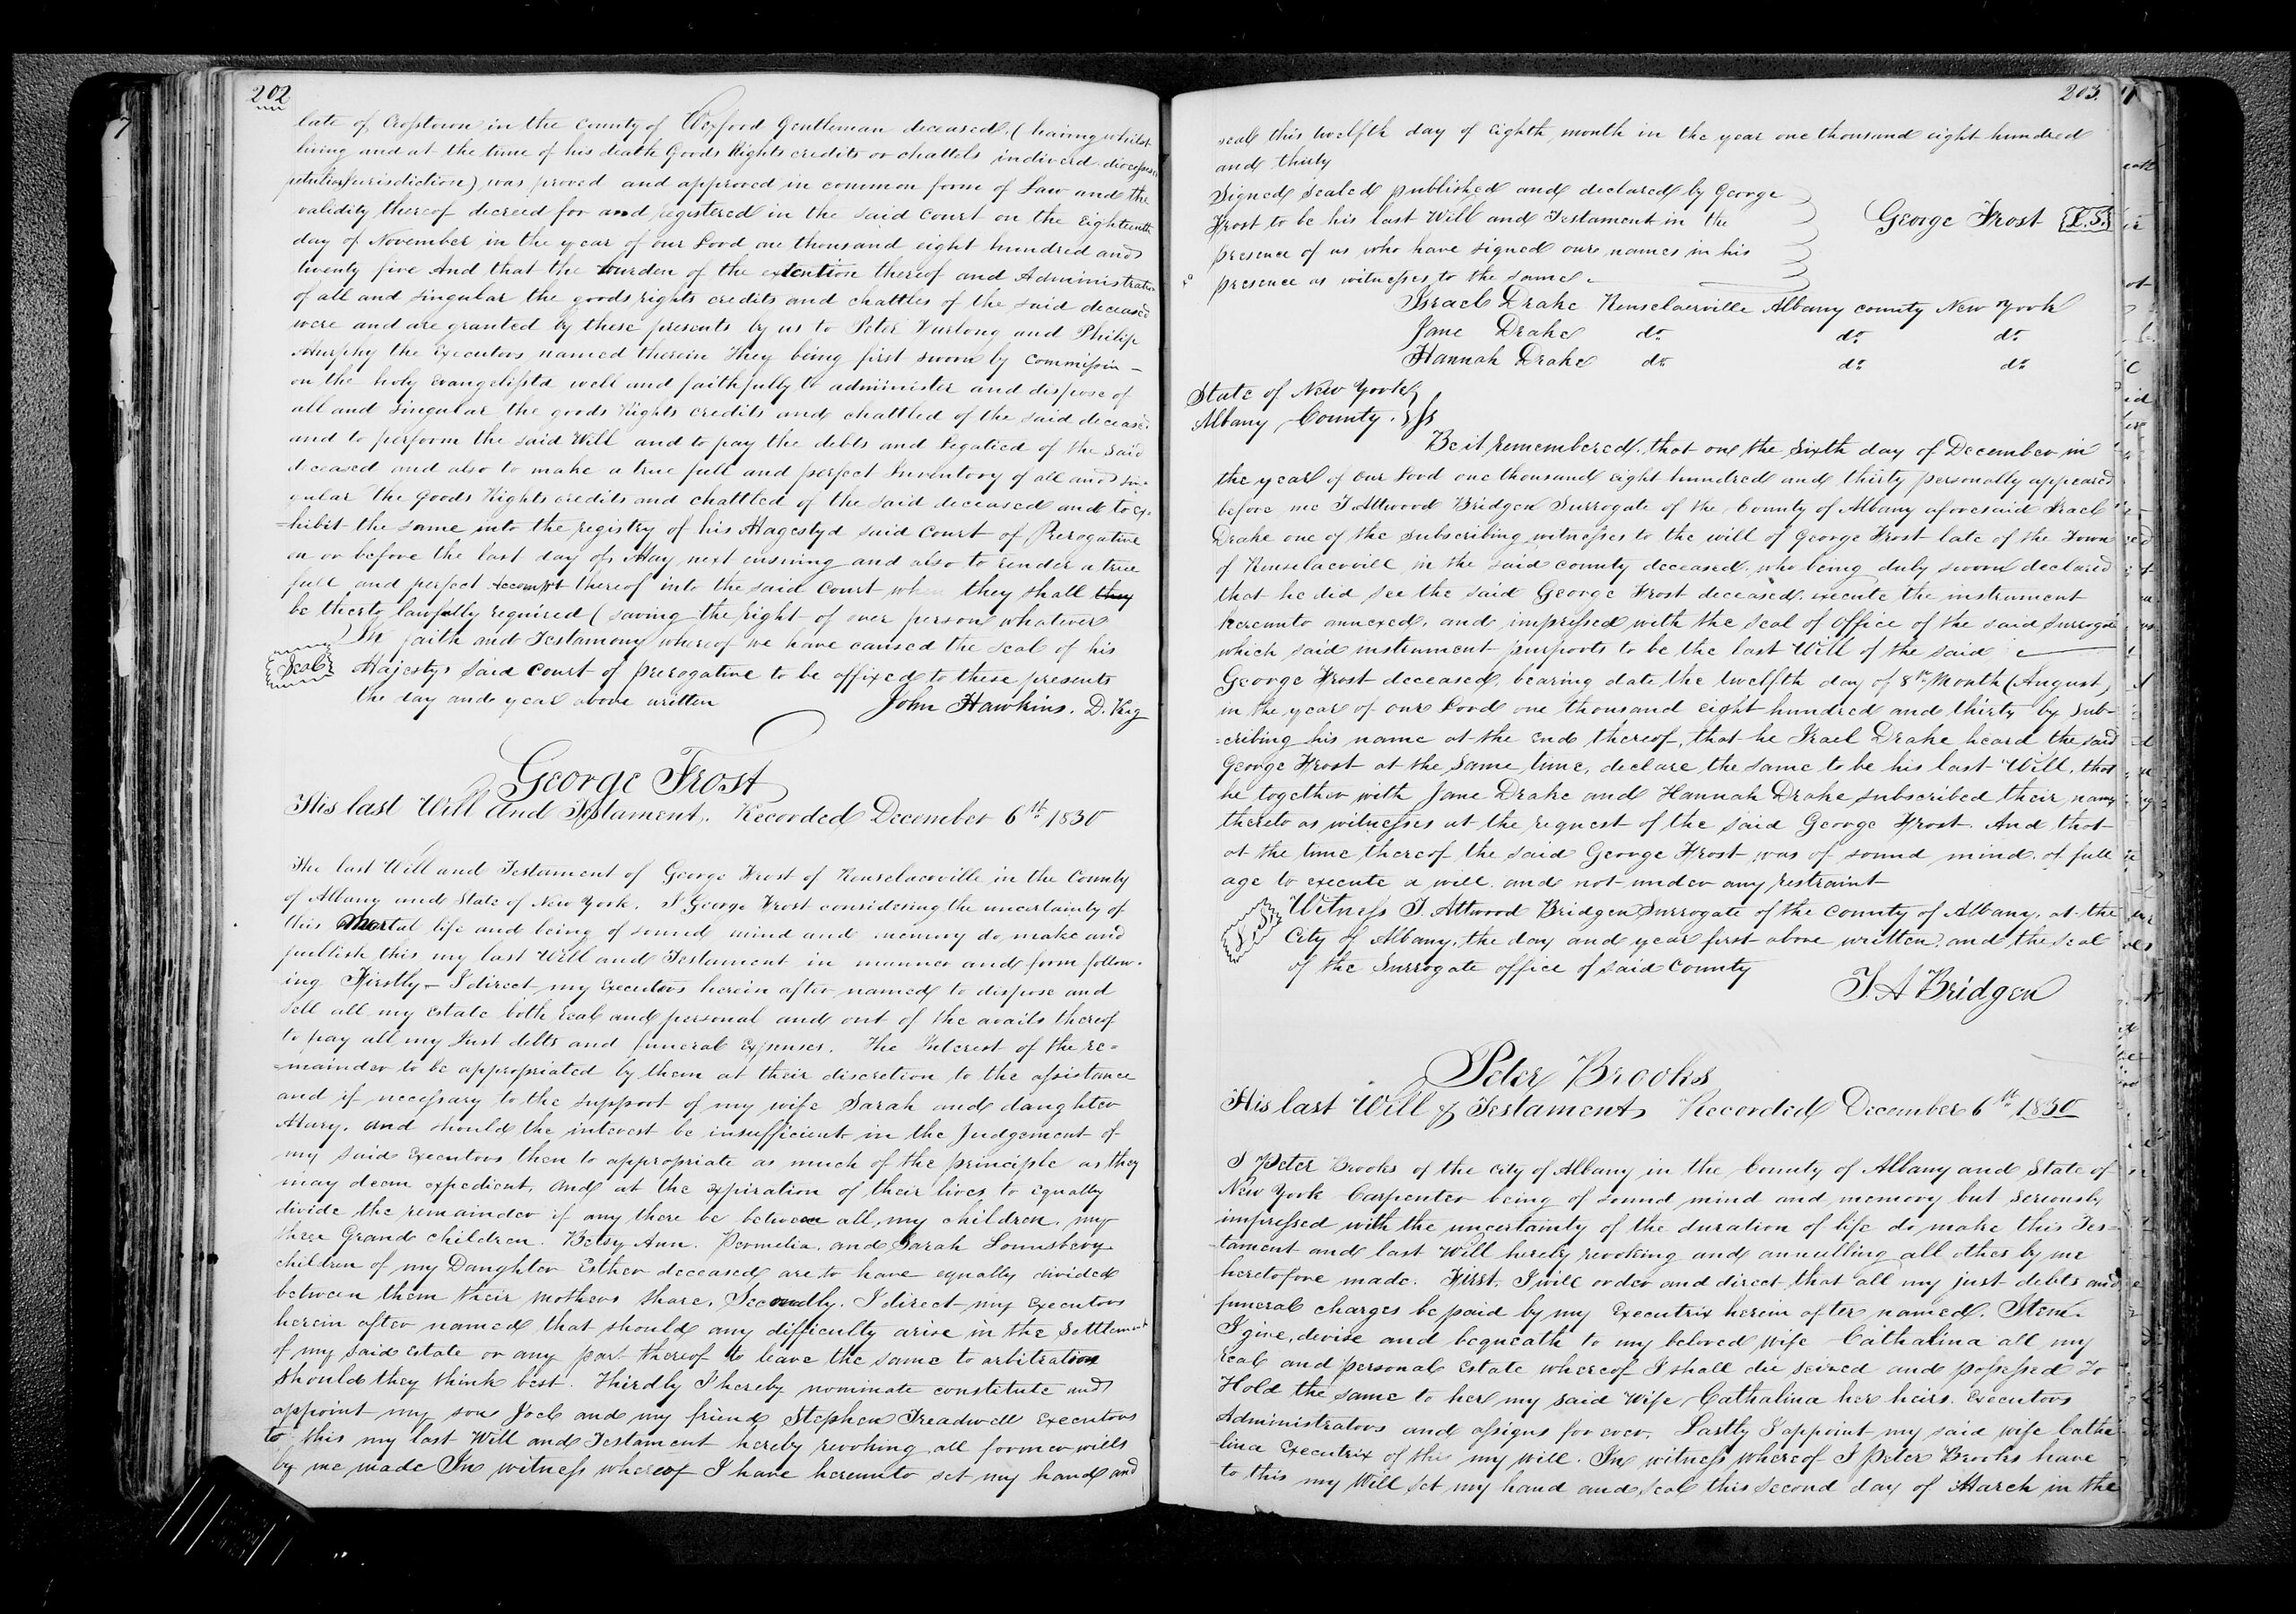 202
late of Crosstown in the County of Wexford Gentleman deceased. (having whilst
living and at the time of his death Goods Rights credits or chattels in diverd diocesses
peculiar Jurisdiction) was proved and approved in common form of Law and the
validity thereof decreed for and registered in the said court on the Eighteenth
day of November in the year of our Lord one thousand eight hundred and
twenty five And that the burden of the extention thereof and Administration
of all and singular the goods rights credits and chattles of the said deceased
were and are granted by these presents by us to Peter Furlong and Philip
Murphy the Executors named therein They being first sworn by Commission -
on the holy Evangelistd well and faithfully to administer and dispose of
all and singular the goods Rights credits and chattled of the said deceased
and to perform the said Will and to pay the debts and Legatied of the said
deceased and also to make a true full and perfect Inventory of all and sin-
gular the Goods Rights credits and chattled of the said deceased and to ex-
=hibit the same into the registry of his Magestyd said Court of Prerogative
on or before the last day of May next ensuing and also to render a true
full and perfect accompt thereof into the said Court when they shall they
be therto lawfully required (saving the right of over person whatever
In faith and Testamony whereof we have caused the seal of his
Seal Majestys said Court of prerogative to be affixed to these presents
the day and year above written John Hawkins. D. Reg
George Frost
His last Will and Testament. Recorded December 6th 1830
The last Will and Testament of George Frost of Renselaerville in the County
of Albany and State of New York. I George Frost considering the uncertainty of
this Mortal life and being of sound mind and memory do make and
publish this my last Will and Testament in manner and form follow-
ing Firstly - I direct my Executors herein after named to dispose and
sell all my estate both real and personal and out of the avails thereof
to pay all my Just debts and funeral Expenses. The Interest of the re=
=mainder to be appropriated by them at their discretion to the assistance
and if necessary to the support of my wife Sarah and daughter
Mary. and should the interest be insufficient in the Judgement of
my said Executors then to appropriate as much of the principle as they
may deem expedient, and at the expiration of their lives to equally
divide the remainder if any there be between all my children. my
three Grand children. Betsy Ann. Permelia. and Sarah Lounsbery
children of my Daughter Esther deceased are to have equally divided
between them their mothers share. Secondly. I direct my executors
herein after named that should any difficulty arise in the Settlement
of my said estate or any part thereof to leave the same to arbitration
should they think best. Thirdly I hereby nominate constitute and
appoint my son Joel and my friend Stephen Treadwell Executors
to this my last Will and Testament hereby revoking all former wills
by me made In witness whereof I have hereunto set my hand and
203.
seal this twelfth day of Eighth month in the year one thousand eight hundred
and thirty
Signed sealed published and declared by George
Frost to be his last Will and Testament in the George Frost L.S.
presence of us who have signed our names in his
presence as witnesses to the same
Israel Drake Renselaerville Albany county New York
Jane Drake do do do
Hannah Drake do do do
State of New York
Albany County. ss
Be it remembered. that on the Sixth day of December in
the year of our Lord one thousand eight hundred and thirty personally appeared
before me T Attwood Bridgen Surrogate of the County of Albany aforesaid Israel
Drake one of the subscribing witnesses to the will of George Frost late of the Town
of Renselaervill in the said county deceased. who being duly sworn declared
that he did see the said George Frost deceased. execute the instrument
hereunto annexed, and impressed with the seal of Office of the said Surrogate
which said instrument purports to be the last Will of the said
George Frost deceased. bearing date the twelfth day of 8th Month (August)
in the year of our Lord one thousand eight hundred and thirty by sub-
=cribing his name at the end thereof, that he Israel Drake heard the said
George Frost at the same time, declare the same to be his last Will, that
he together with Jane Drake and Hannah Drake subscribed their names
thereto as witnesses at the request of the said George Frost. And that
at the time thereof the said George Frost was of sound mind. of full
age to execute a will. and not under any restraint
L.S. Witness T. Attwood Bridgen Surrogate of the County of Albany, at the
City of Albany, the day and year first above written. and the seal
of the Surrogate office of said County
T. A Bridgen
Peter Brooks
His last Will & Testament Recorded December 6th 1830
I Peter Brooks of the city of Albany in the County of Albany and State of
New York Carpenter being of sound mind and memory but seriously
impressed with the uncertainty of the duration of life do make this Tes=
=tament and last Will hereby revoking and annulling all other by me
heretofore made. First. I will order and direct that all my just debts and
funeral charges be paid by my Executrix herein after named. Item.
I give, devise and bequeath to my beloved wife Cathalina all my
real and personal estate whereof I shall die seized and possessed To
Hold the same to her my said Wife Cathalina her heirs. Executors
Administrators and assigns for ever. Lastly I appoint my said wife Catha
-lina Executrix of this my will. In witness whereof I Peter Brooks have
to this my Will set my hand and seal this second day of March in the